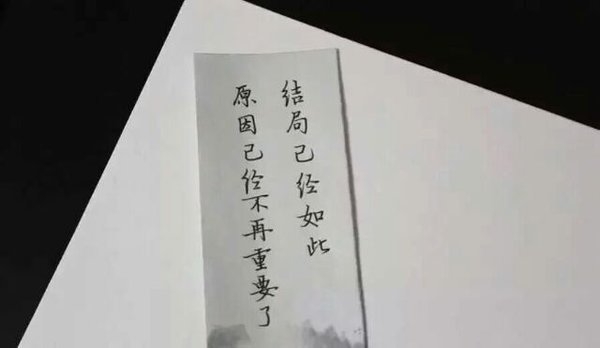 结局已经如此
原因已经不再重要了